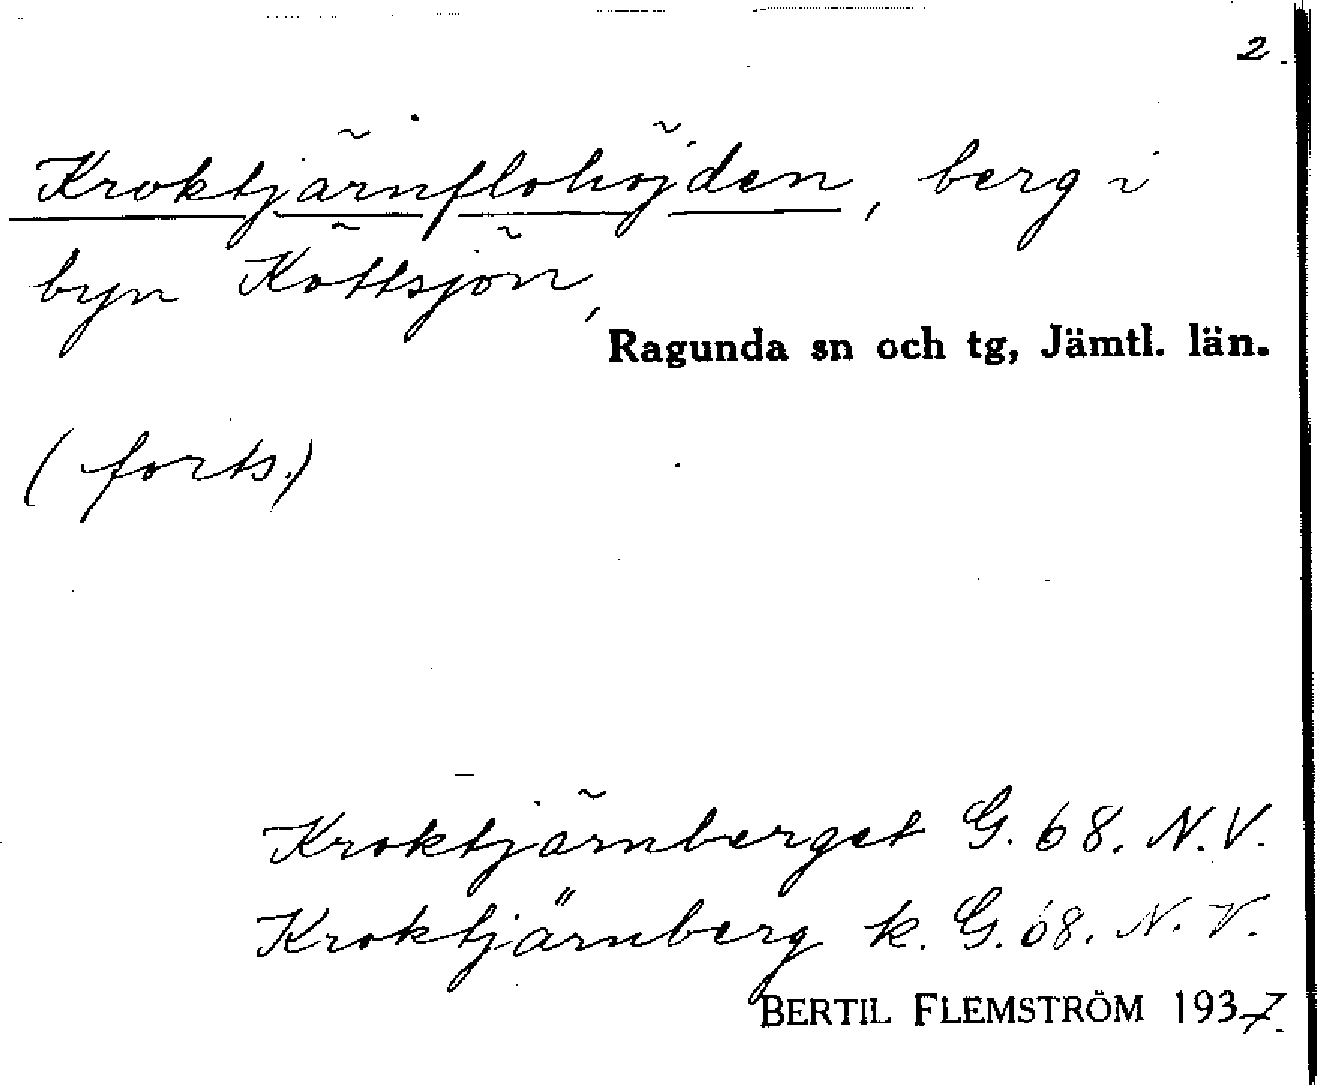 2.
Kroktjärnflohöjden, berg i
byn Köttsjön,
Ragunda sn och tg, Jämtl. län.
(forts.)
Kroktjärnberget G. 68. N.V.
Kroktjärnberg k. G. 68. N.V.
BERTIL FLEMSTRÖM 1937.